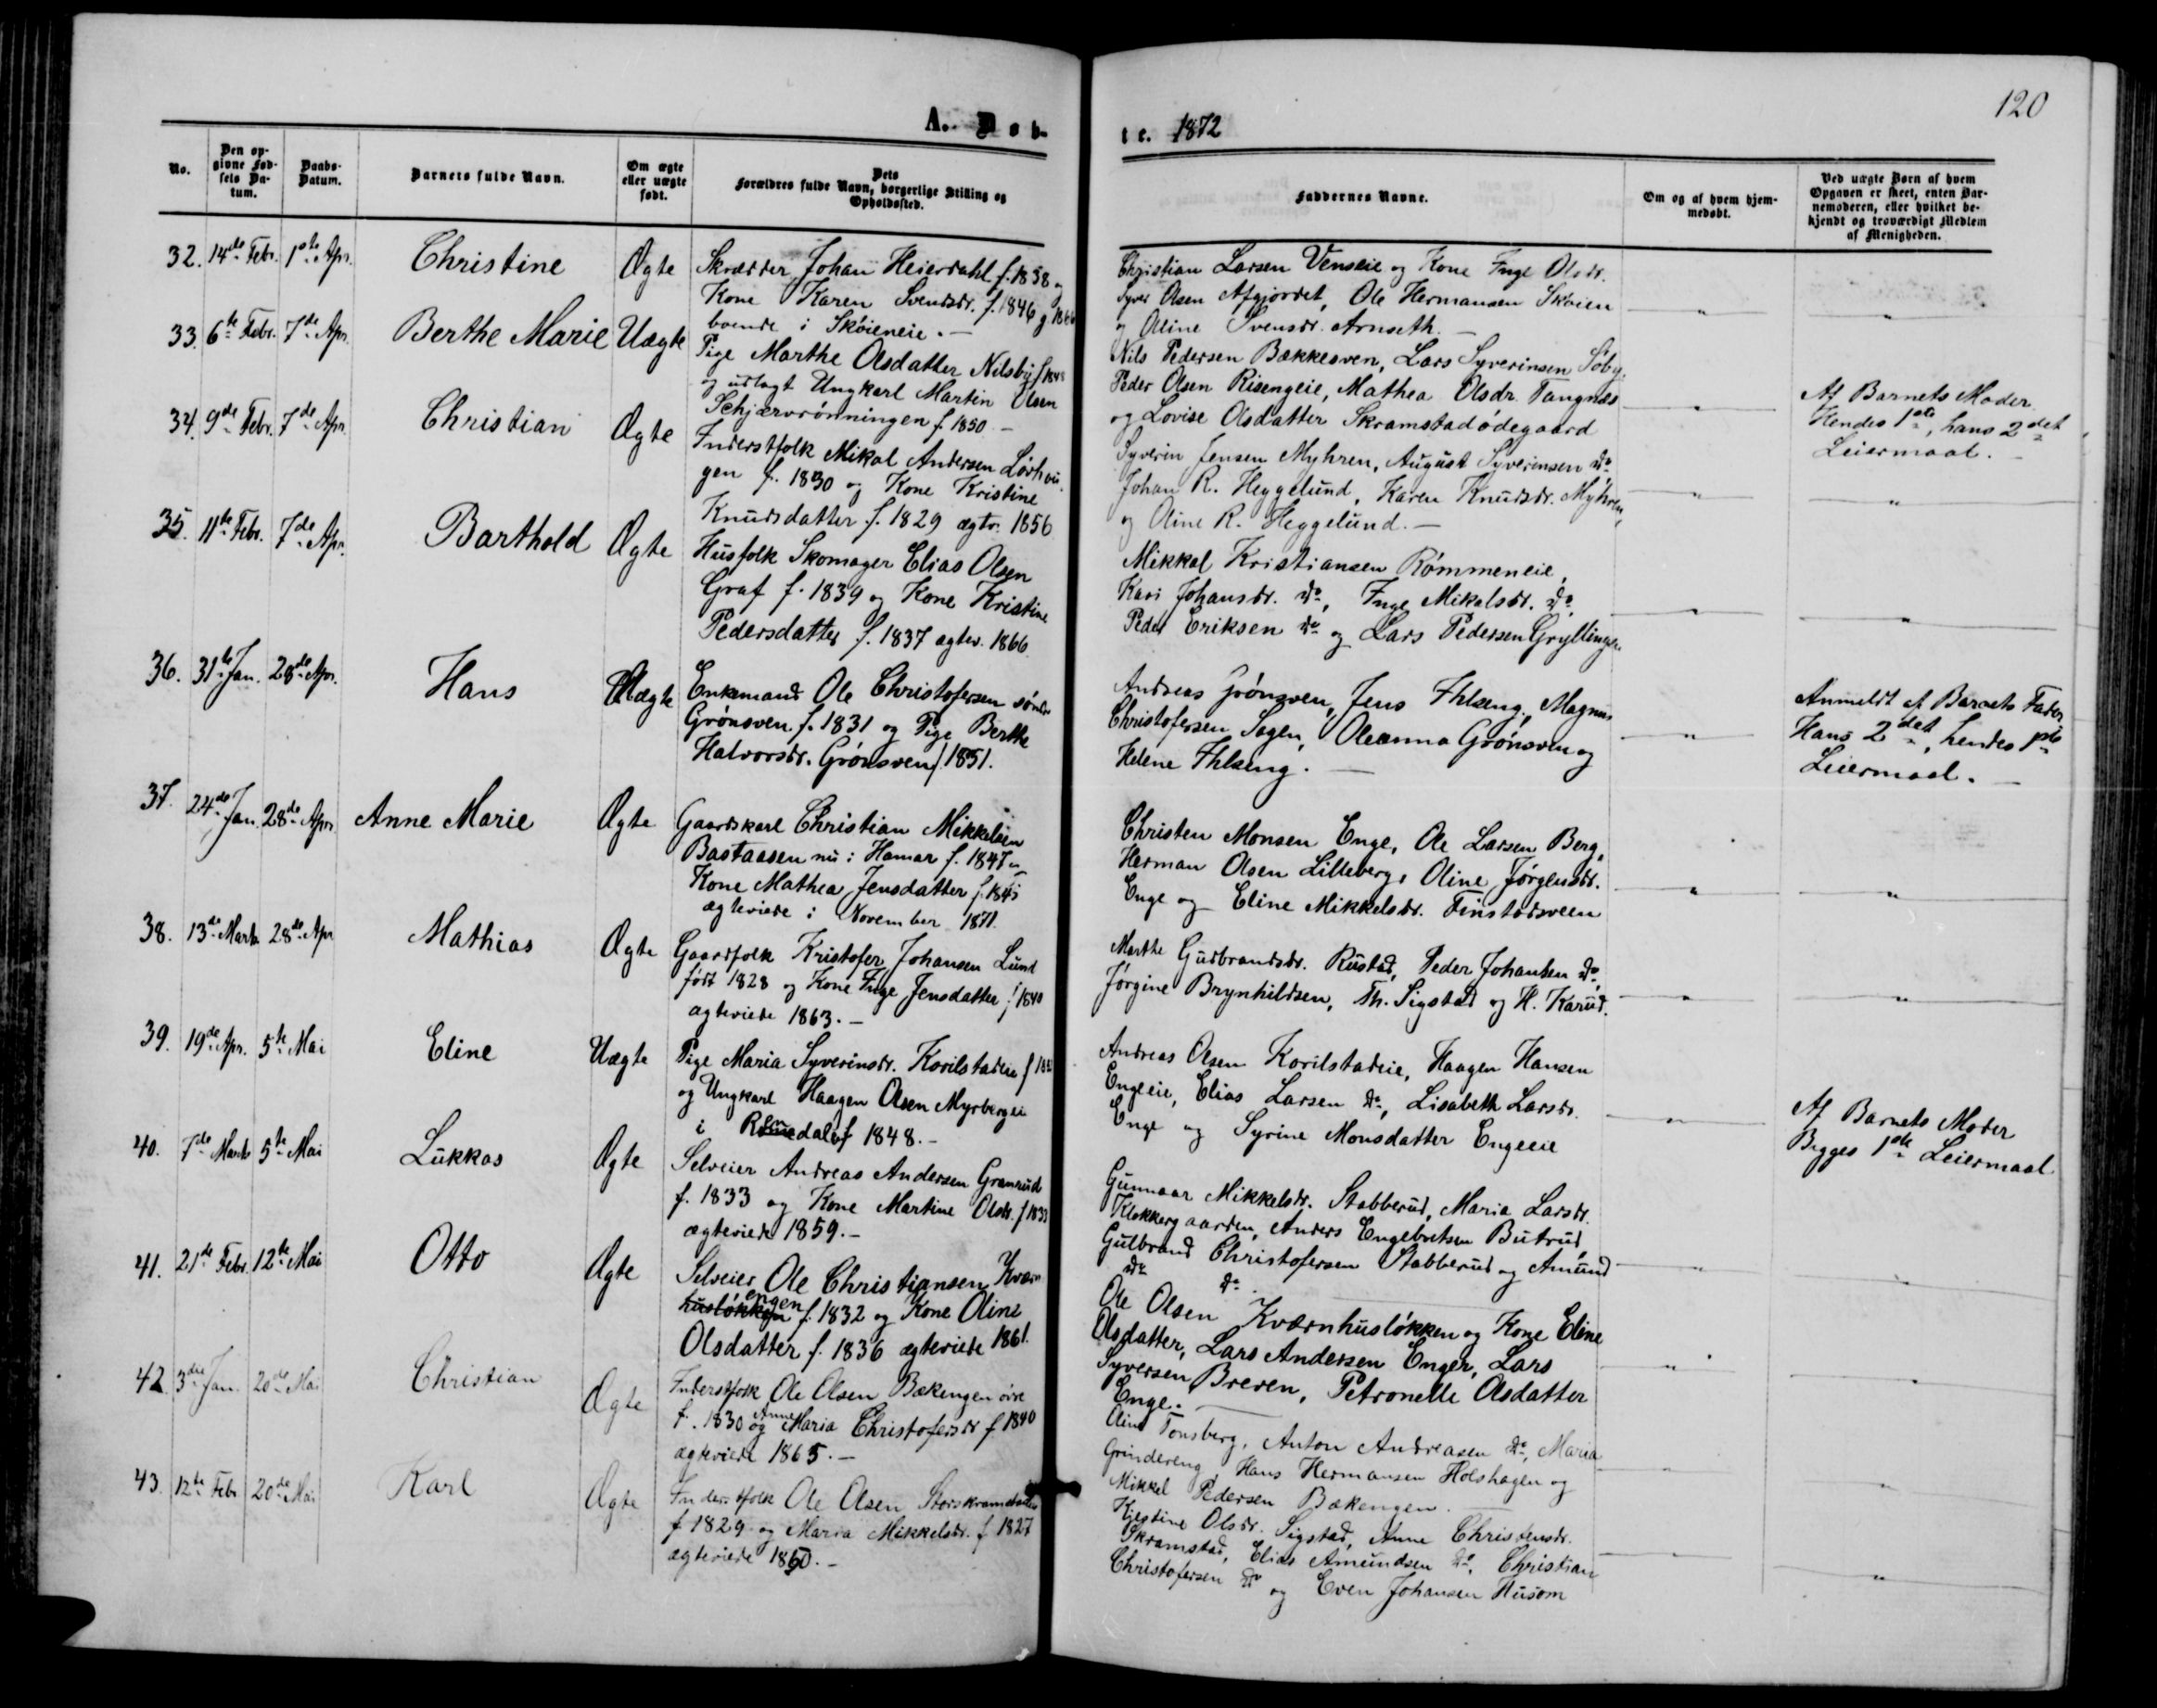 A. Døb-
te. 1872
120
No.
Den op-
givne Fød-
sels Da-
tum.
Daabs-
Datum.
Barnets fulde Navn.
Om ægte
eller uægte
født.
Dets
Forældres fulde Navn, borgerlige Stilling og
Opholdssted.
Faddernes Navne.
Om og af hvem hjem-
medøbt.
Ved uægte Børn af hvem
Opgaven er skeet, enten Bar-
nemoderen, eller hvilket be-
kjendt og troværdigt Medlem
af Menigheden.
32. 14de Febr. 1ste Apr. Christine Ægte
Skrædder Johan Heierdahl f. 1838 og
Kone Karen Svendsdr. f. 1846 g 1866
boende i Skøieneie. -
Christian Larsen Venseie og Kone Inge Olsdr.
Syver Olsen Afgjordet, Ole Hermansen Skøien
og Oline Svensdr. Arnseth. -
33. 6te Febr. 7de Apr. Berthe Marie Uægte
Pige Marthe Olsdatter Nilsby f 1848
og udlagt Ungkarl Martin Olsen
Schjærvrønningen f. 1850 -
Nils Pedersen Bækkesven, Lars Syverinsen Søby,
Peder Olsen Risengeie, Mathea Olsdr. Tangnæs
og Lovise Olsdatter Skramstadødegaard
Af Barnets Moder
Hendes 1ste, hans 2det
Leiermaal. -
34. 9de Febr. 7de Apr. Christian Ægte
Inderstfolk Mikal Andersen
gen f. 1830 og Kone Kristine
Knudsdatter f. 1829 ægtv. 1856
Syverin Jensen Myhren, August Syverinsen do
Johan R. Heggelund, Karen Knudsdr. Myhren,
og Oline R. Heggelund. -
35. 11te Febr. 7de Apr. Barthold Ægte
Husfolk Skomager Elias Olsen
Graf f. 1839 og Kone Kristine
Pedersdatter f. 1837 ægtev. 1866
Mikkal Kristiansen Rømmeneie,
Kari Johansdr. do, Inge Mikalsdr. do
Peder Eriksen do og Lars Pedersen Gryllingse
36. 31te Jan. 28de Apr. Hans Uægte
Enkemand Ole Christofersen søndre
Grønsven f. 1831 og Pige Berthe
Halvorsdr. Grønsven f. 1851.
Andreas Grønsven, Jens Ihlseng, Magnus
Christofersen Sagen, Oleanna Grønsven og
Helene Ihlseng. -
Anmeldt af Barnets Fader
Hans 2det, hendes 1ste
Leiermaal. -
37. 24de Jan. 28de Apr. Anne Marie Ægte
Gaardskarl Christian Mikkelsen
Bastaasen nu i Hamar f. 1847 og
Kone Mathea Jensdatter f. 1845
ægteviede i November 1871.
Christen Monsen Enge, Ole Larsen Berg,
Herman Olsen Lilleberg, Oline Jørgensdr.
Enge og Eline Mikkelsdr. Finstadsveen
38. 13de Marts 28de Apr. Mathias Ægte
Gaardfolk Kristofer Johansen Lund
født 1828 og Kone Inge Jensdatter f 1840
ægteviede 1863. -
Marthe Gudbrandsdr. Rustad, Peder Johansen do,
Jørgine Brynhildsen, Th. Sigstad og H. Karud.
39. 19de Apr. 5te Mai Eline Uægte
Pige Maria Syverinsdr. Korilstadeie f
og Ungkarl Haagen Olsen Myrbergeie
i Romedal f 1848. -
Andreas Olsen Korilstadeie, Haagen Hansen
Engeeie, Elias Larsen do, Lisabeth Larsdr.
Enge og Syrine Monsdatter Engeeie
Af Barnets Moder
Begges 1ste Leiermaal
40. 7de Marts 5te Mai Lukkas Ægte
Selveier Andreas Andersen Granrud
f. 1833 og Kone Martine Olsdr. f 1833
ægteviede 1859. -
Gunnaar Mikkelsdr. Stabberud, Maria Larsdr.
Klokkergaarden, Anders Engebretsen Butrud,
Gulbrand Christofersen Stabberud og Amund
do do.
41. 21de Febr. 12te Mai Otto Ægte
Selveier Ole Christiansen Kværn
husløkken engen f. 1832 og Kone Oline
Olsdatter f. 1836 ægteviede 1861.
Ole Olsen Kværnhusløkken og Kone Eline
Olsdatter, Lars Andersen Enger, Lars
Syversen Breren, Petronelle Olsdatter
Enge. -
42. 3die Jan. 20de Mai Christian Ægte
Inderstfolk Ole Olsen Bækengen øvre
f. 1830 og Anne Maria Christofersdr f. 1840
ægteviede 1865. -
Tonsberg, Anton Andreasen do, Maria
Grindereng, Hans Hermansen Holshagen og
Mikkel Pedersen Bækengen. -
43. 12te Febr 20de Mai Karl Ægte
Inderstfolk Ole Olsen Storskramstad
f 1829 og Maria Mikkelsdr. f 1827
ægteviede 1860. -
Kjestine Olsdr. Sigstad, Anne Christensdr.
Skramstad, Elias Amundsen do, Christian
Christofersen do og Even Johansen Husom